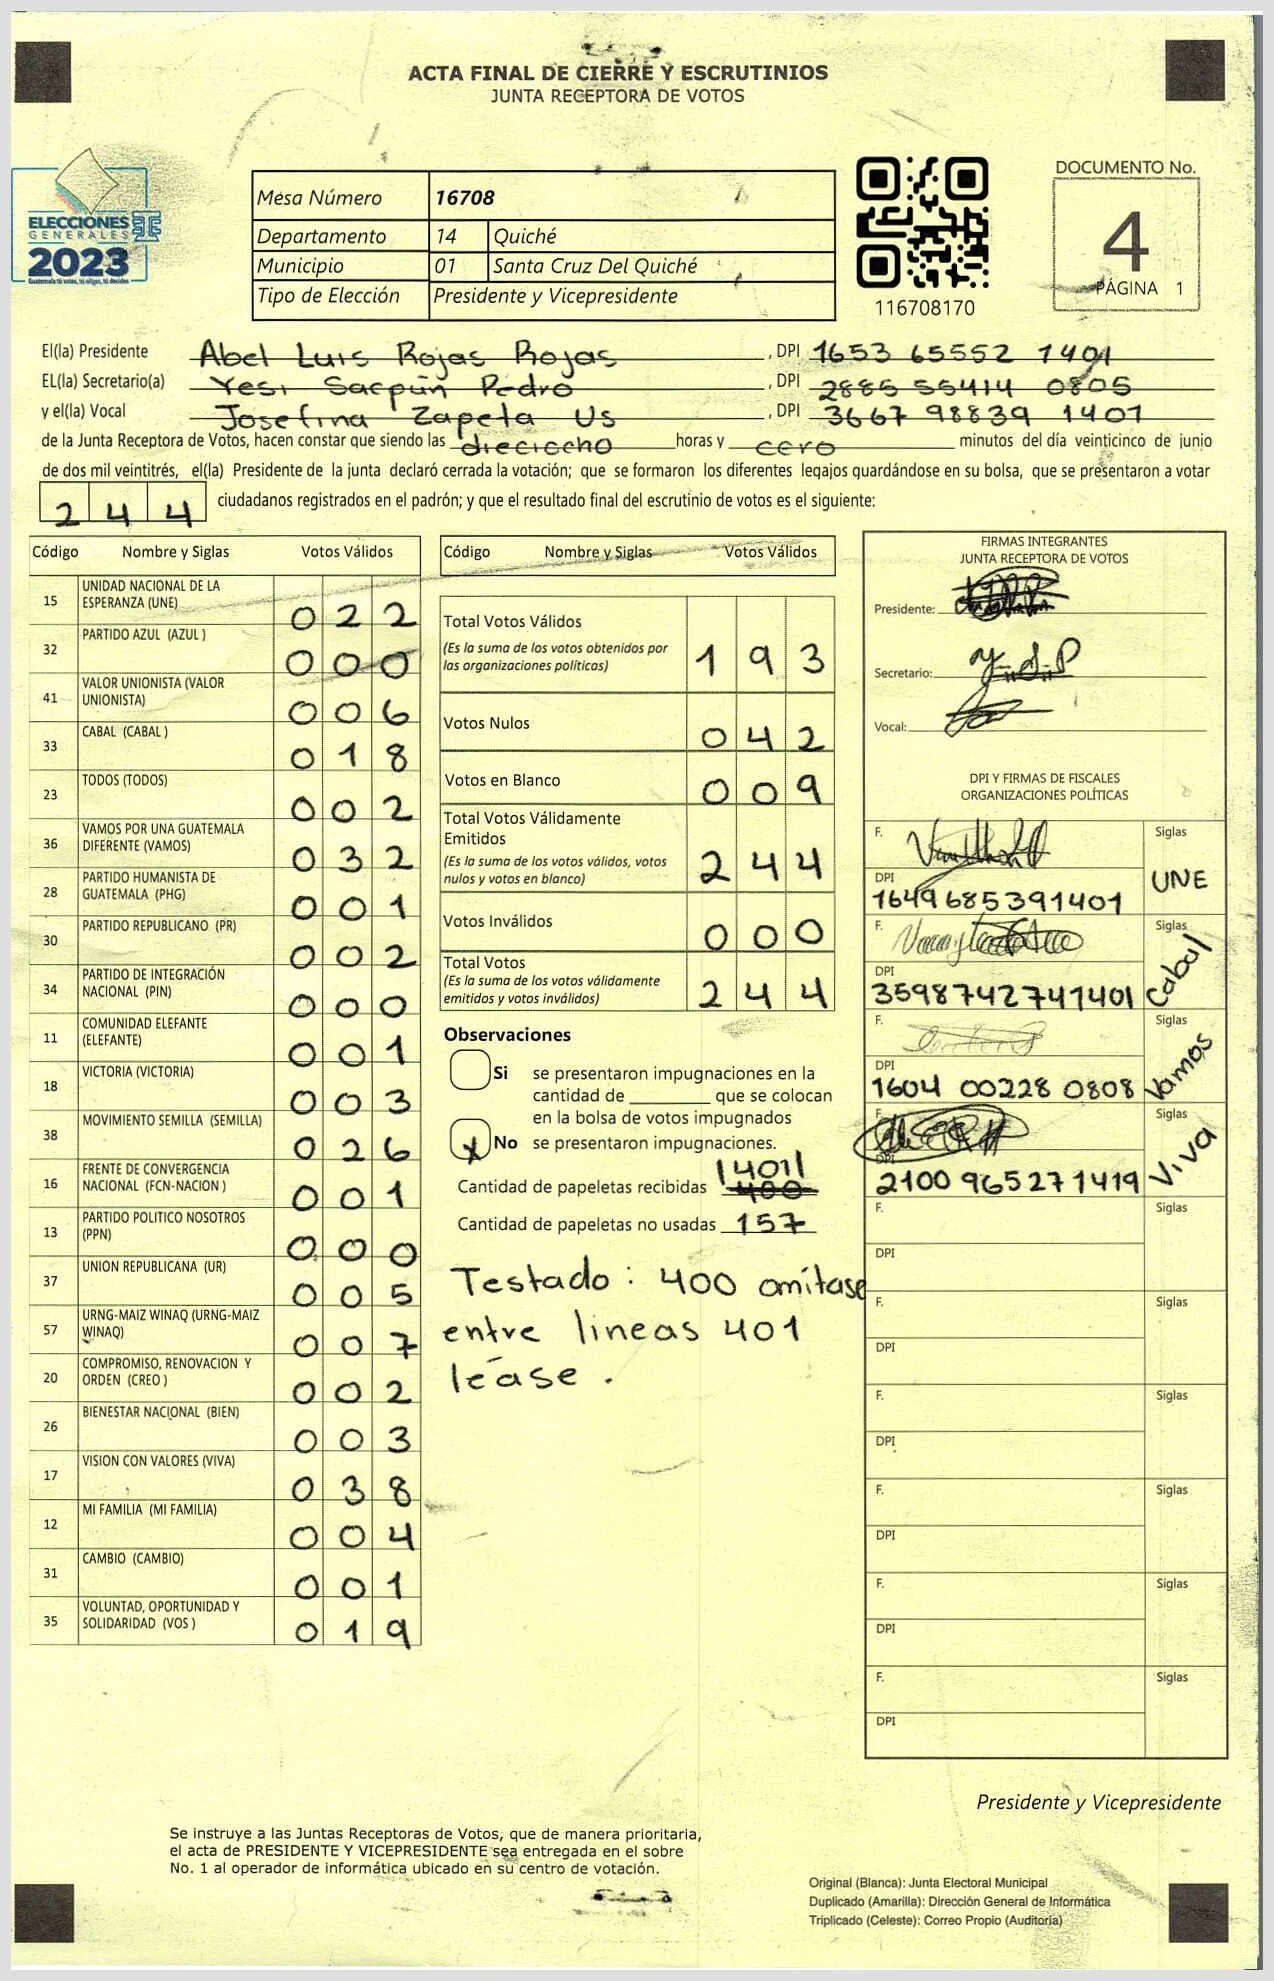 ACTA FINAL DE CIERRE Y ESCRUTINIOS
JUNTA RECEPTORA DE VOTOS
ELECCIONES
GENERALES
2023
Guatemala tú votas, tú eliges, tú decides
Mesa Número 16708
Departamento 14 Quiché
Municipio 01 Santa Cruz Del Quiché
Tipo de Elección Presidente y Vicepresidente
116708170
DOCUMENTO No.
4
PÁGINA 1
El(la) Presidente Abel Luis Rojas Rojas , DPI 1653 65552 1401
EL(la) Secretario(a) Yesi Sacpún Pedro , DPI 2885 55414 0805
y el(la) Vocal Josefina Zapeta Us , DPI 3667 98839 1401
de la Junta Receptora de Votos, hacen constar que siendo las dieciocho horas y cero minutos del día veinticinco de junio
de dos mil veintitrés, el(la) Presidente de la junta declaró cerrada la votación; que se formaron los diferentes legajos guardándose en su bolsa, que se presentaron a votar
244 ciudadanos registrados en el padrón; y que el resultado final del escrutinio de votos es el siguiente:
Código Nombre y Siglas Votos Válidos
15 UNIDAD NACIONAL DE LA
ESPERANZA (UNE) 022
32 PARTIDO AZUL (AZUL ) 000
41 VALOR UNIONISTA (VALOR
UNIONISTA) 006
33 CABAL (CABAL ) 018
23 TODOS (TODOS) 002
36 VAMOS POR UNA GUATEMALA
DIFERENTE (VAMOS) 032
28 PARTIDO HUMANISTA DE
GUATEMALA (PHG) 001
30 PARTIDO REPUBLICANO (PR) 002
34 PARTIDO DE INTEGRACIÓN
NACIONAL (PIN) 000
11 COMUNIDAD ELEFANTE
(ELEFANTE) 001
18 VICTORIA (VICTORIA) 003
38 MOVIMIENTO SEMILLA (SEMILLA) 026
16 FRENTE DE CONVERGENCIA
NACIONAL (FCN-NACION ) 001
13 PARTIDO POLITICO NOSOTROS
(PPN) 000
37 UNION REPUBLICANA (UR) 005
57 URNG-MAIZ WINAQ (URNG-MAIZ
WINAQ) 007
20 COMPROMISO, RENOVACION Y
ORDEN (CREO ) 002
26 BIENESTAR NACIONAL (BIEN) 003
17 VISION CON VALORES (VIVA) 038
12 MI FAMILIA (MI FAMILIA) 004
31 CAMBIO (CAMBIO) 001
35 VOLUNTAD, OPORTUNIDAD Y
SOLIDARIDAD (VOS ) 019
Código Nombre y Siglas Votos Válidos
Total Votos Válidos
(Es la suma de los votos obtenidos por
las organizaciones políticas) 193
Votos Nulos 042
Votos en Blanco 009
Total Votos Válidamente
Emitidos
(Es la suma de los votos válidos, votos
nulos y votos en blanco) 244
Votos Inválidos 000
Total Votos
(Es la suma de los votos válidamente
emitidos y votos inválidos) 244
Observaciones
Si se presentaron impugnaciones en la
cantidad de ________ que se colocan
en la bolsa de votos impugnados
X No se presentaron impugnaciones.
|401|
Cantidad de papeletas recibidas 400
Cantidad de papeletas no usadas 157
Testado: 400 omítase
entre lineas 401
léase.
FIRMAS INTEGRANTES
JUNTA RECEPTORA DE VOTOS
Presidente:
Secretario:
Vocal:
DPI Y FIRMAS DE FISCALES
ORGANIZACIONES POLÍTICAS
F. Siglas
DPI UNE
1649685391401
F. Siglas
DPI Cabal
3598742741401
F. Siglas
DPI Vamos
1604 00228 0808
F. Siglas
DPI Viva
2100 965271419
F. Siglas
DPI
F. Siglas
DPI
F. Siglas
DPI
F. Siglas
DPI
F. Siglas
DPI
F. Siglas
DPI
Presidente y Vicepresidente
Se instruye a las Juntas Receptoras de Votos, que de manera prioritaria,
el acta de PRESIDENTE Y VICEPRESIDENTE sea entregada en el sobre
No. 1 al operador de informática ubicado en su centro de votación.
Original (Blanca): Junta Electoral Municipal
Duplicado (Amarilla): Dirección General de Informática
Triplicado (Celeste): Correo Propio (Auditoría)